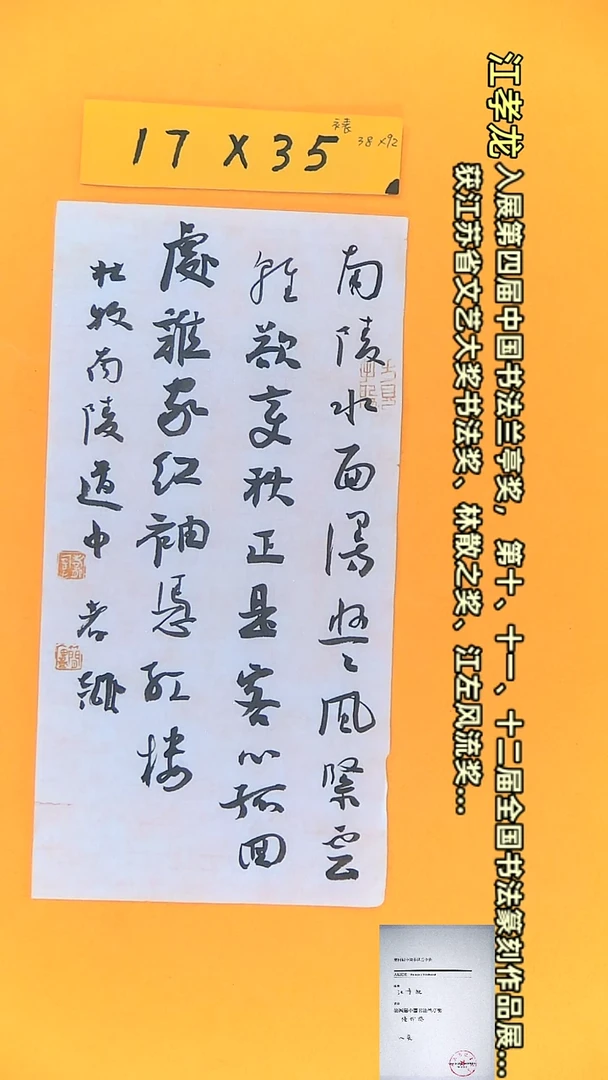 江孝龙 入展第四届中国书法兰亭奖,第十、十一、十二届全国书法篆刻作品展...
获江苏省文艺大奖书法奖、林散之奖、江左风流奖...
17 X 35
裱 38 X92
南陵水面漫悠々風緊雲
輕欲變秋正是客心孤回
處誰家紅袖憑江樓
杜牧南陵道中 孝龍